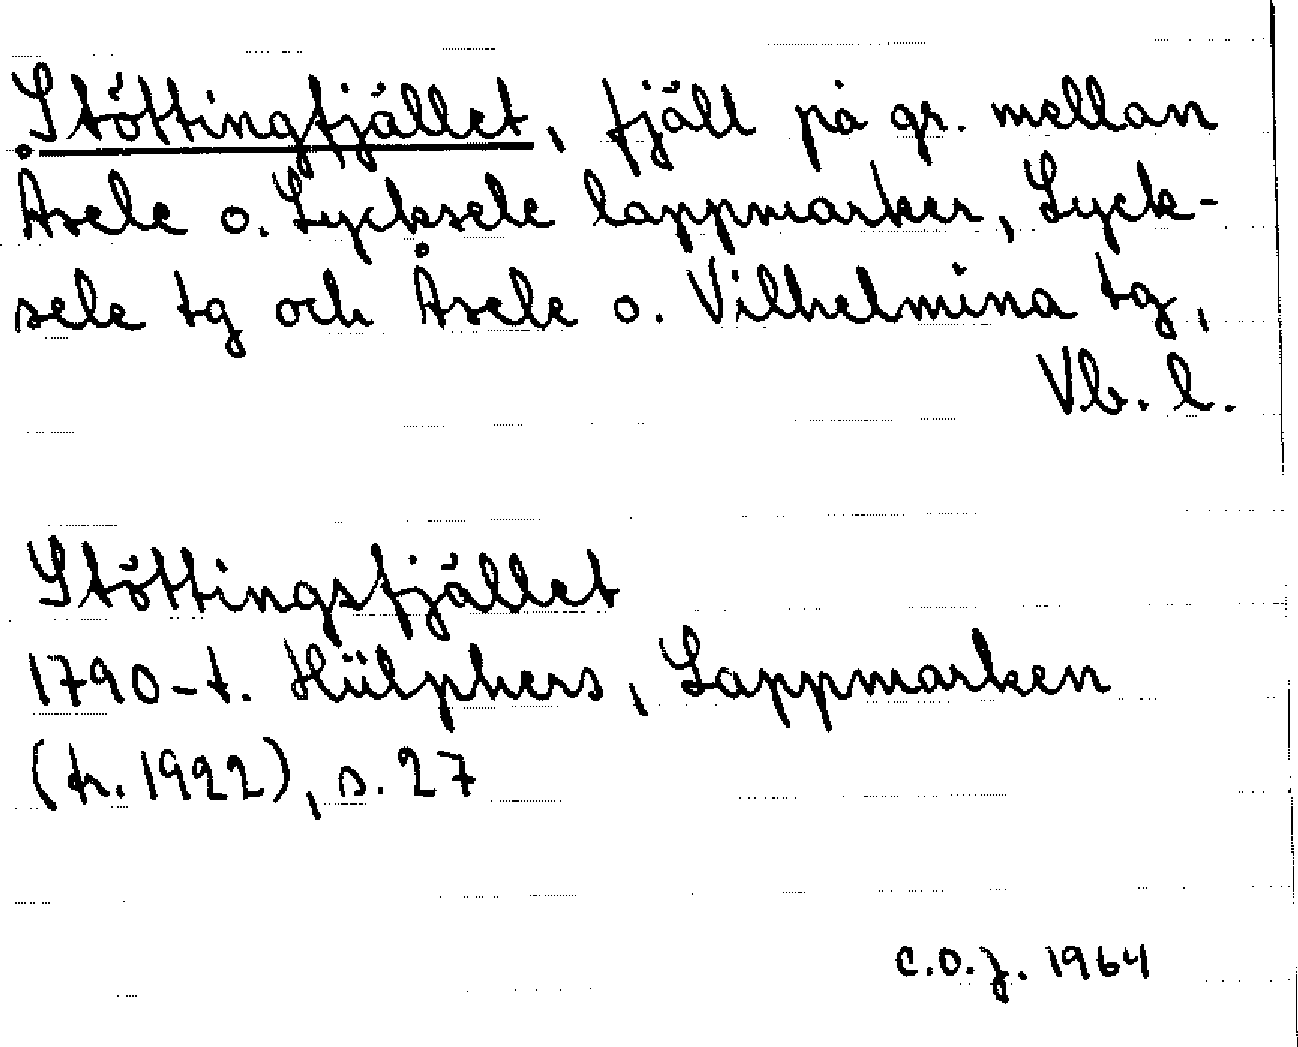 Stöttingfjället, fjäll på gr. mellan
Åsele o. Lycksele lappmarker, Lyck-
sele tg och Åsele o. Vilhelmina tg,
Vb. l.
Stöttingsfjället
1790-t. Hülphers, Lappmarken
(tr. 1922), s. 27
C.O.J. 1964